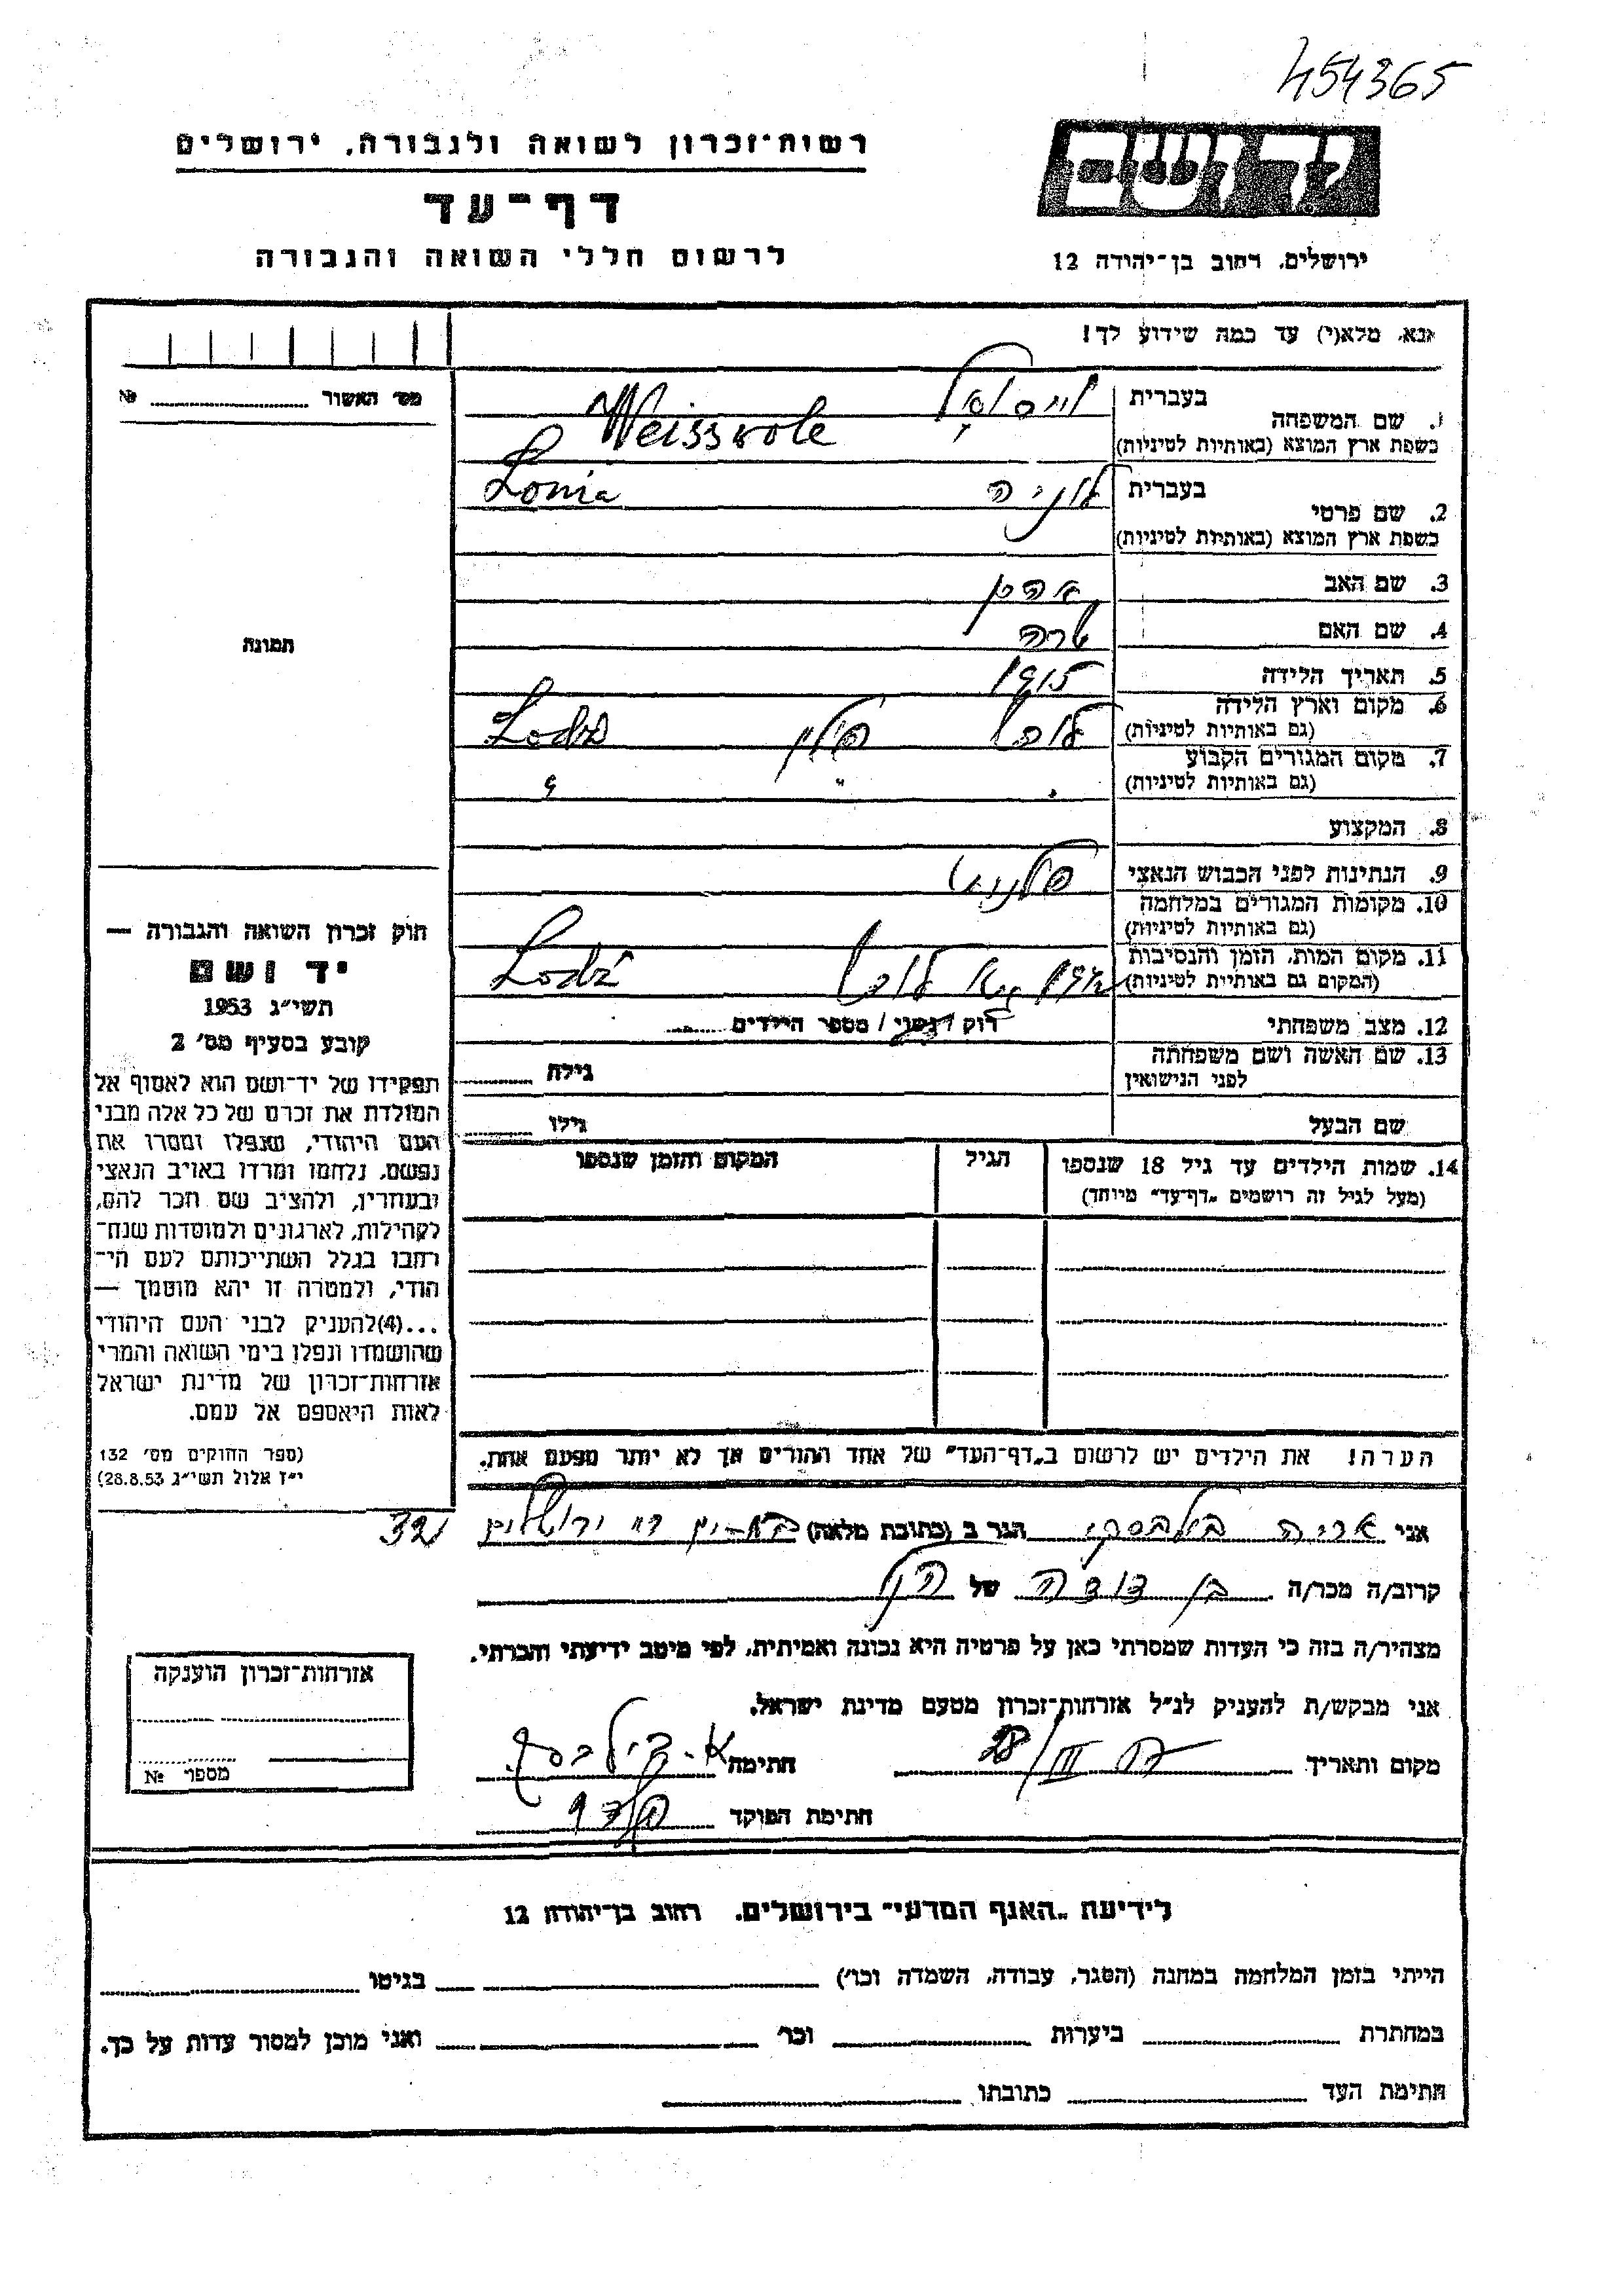 454365
רשות־זכרון לשואה ולגבורה, ירושלים
דף־עד
לרשום חללי השואה והגבורה
ירושלים, רחוב בן־יהודה 12
אנא, מלא(י) עד כמה שידוע לך!
מס׳ האשור № 
1. שם המשפחה בעברית
בשפת ארץ המוצא (באותיות לטיניות) Weisswole
2. שם פרטי בעברית לוניה Lonia
בשפת ארץ המוצא (באותיות לטיניות)
3. שם האב אהרן
4. שם האם שרה
5. תאריך הלידה 1915
6. מקום וארץ הלידה (גם באותיות לטיניות) לודז׳ פולין Lodz
7. מקום המגורים הקבוע (גם באותיות לטיניות) " " "
8. המקצוע
9. הנתינות לפני הכבוש הנאצי פולנית
10. מקומות המגורים במלחמה (גם באותיות לטיניות)
11. מקום המות, הזמן והנסיבות (המקום גם באותיות לטיניות) לודז׳ Lodż
12. מצב משפחתי רוק / נשוי / מספר הילדים
13. שם האשה ושם משפחתה לפני הנישואין גילה
שם הבעל גילו
14. שמות הילדים עד גיל 18 שנספו (מעל לגיל זה רושמים „דף־עד״ מיוחד) הגיל המקום והזמן שנספו
הערה! את הילדים יש לרשום ב„דף־העד״ של אחד ההורים אך לא יותר מפעם אחת.
תמונה
חוק זכרון השואה והגבורה —
יד ושם
תשי״ג 1953
קובע בסעיף מס׳ 2
תפקידו של יד־ושם הוא לאסוף אל
המולדת את זכרם של כל אלה מבני
העם היהודי, שנפלו ומסרו את
נפשם, נלחמו ומרדו באויב הנאצי
ובעוזריו, ולהציב שם וזכר להם,
לקהילות, לארגונים ולמוסדות שנח־
רבו בגלל השתייכותם לעם הי־
הודי, ולמטרה זו יהא מוסמך —
...(4)להעניק לבני העם היהודי
שהושמדו ונפלו בימי השואה והמרי
אזרחות־זכרון של מדינת ישראל
לאות היאספם אל עמם.
(ספר החוקים מס׳ 132
י״ז אלול תשי״ג 28.8.53)
אני אריה הגר ב (כתובת מלאה) ירושלים 32
קרוב/ה מכר/ה בן דודה של הנ״ל
מצהיר/ה בזה כי העדות שמסרתי כאן על פרטיה היא נכונה ואמיתית, לפי מיטב ידיעתי והכרתי.
אני מבקש/ת להעניק לנ״ל אזרחות־זכרון מטעם מדינת ישראל.
מקום ותאריך חתימה
חתימת הפוקד
אזרחות־זכרון הוענקה
מספר №
לידיעת „האגף המדעי״ בירושלים, רחוב בן־יהודה 12
הייתי בזמן המלחמה במחנה (הסגר, עבודה, השמדה וכו׳) בגיטו
במחתרת ביערות וכו׳ ואני מוכן למסור עדות על כך.
חתימת העד כתובתו